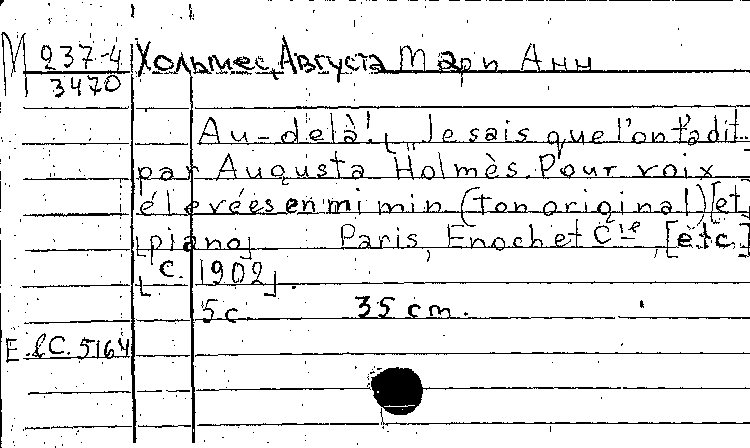 М 237-4 Хольмес, Августа Мари Анн
3470
Au-delà! „Je sais que l'on t'a dit...
par Augusta Holmès. Pour voix
élevées en mi min. (ton original) [et
piano] Paris, Enoch et Cie, [etc.]
[c. 1902].
5 c. 35 cm.
E. & C. 5164